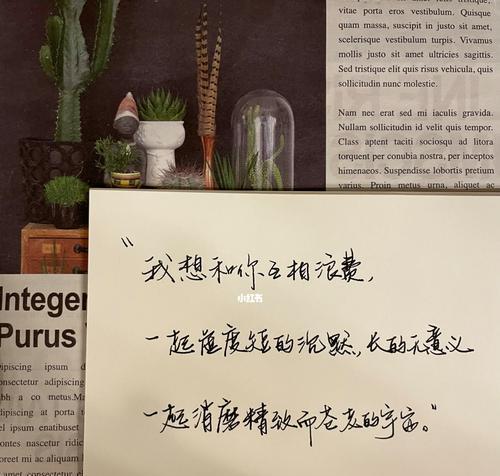 vitae porta eros vestibulum. Quisque
quam massa, suscipit in justo sit amet,
scelerisque vestibulum turpis. Vivamus
mollis justo sit amet ultricies sagittis.
Sed tristique elit quis risus vehicula, quis
sollicitudin nunc molestie.
Nam nec erat sed mi iaculis gravida.
Nullam sollicitudin id velit quis tempor.
Class aptent taciti sociosqu ad litora
torquent per conubia nostra, per inceptos
himenaeos. Suspendisse lobortis pretium
varius. Proin metus urna, aliquet ac
“我想和你互相浪费,
小红书
一起虚度短的沉默,长的无意义
一起消磨精致而苍老的宇宙。”
Integer
Purus
ipsum
consectetur adipiscing
a co metus.
adipiscing at porta
ipsum
nascetur
mi ac aliquam
amet consectetur